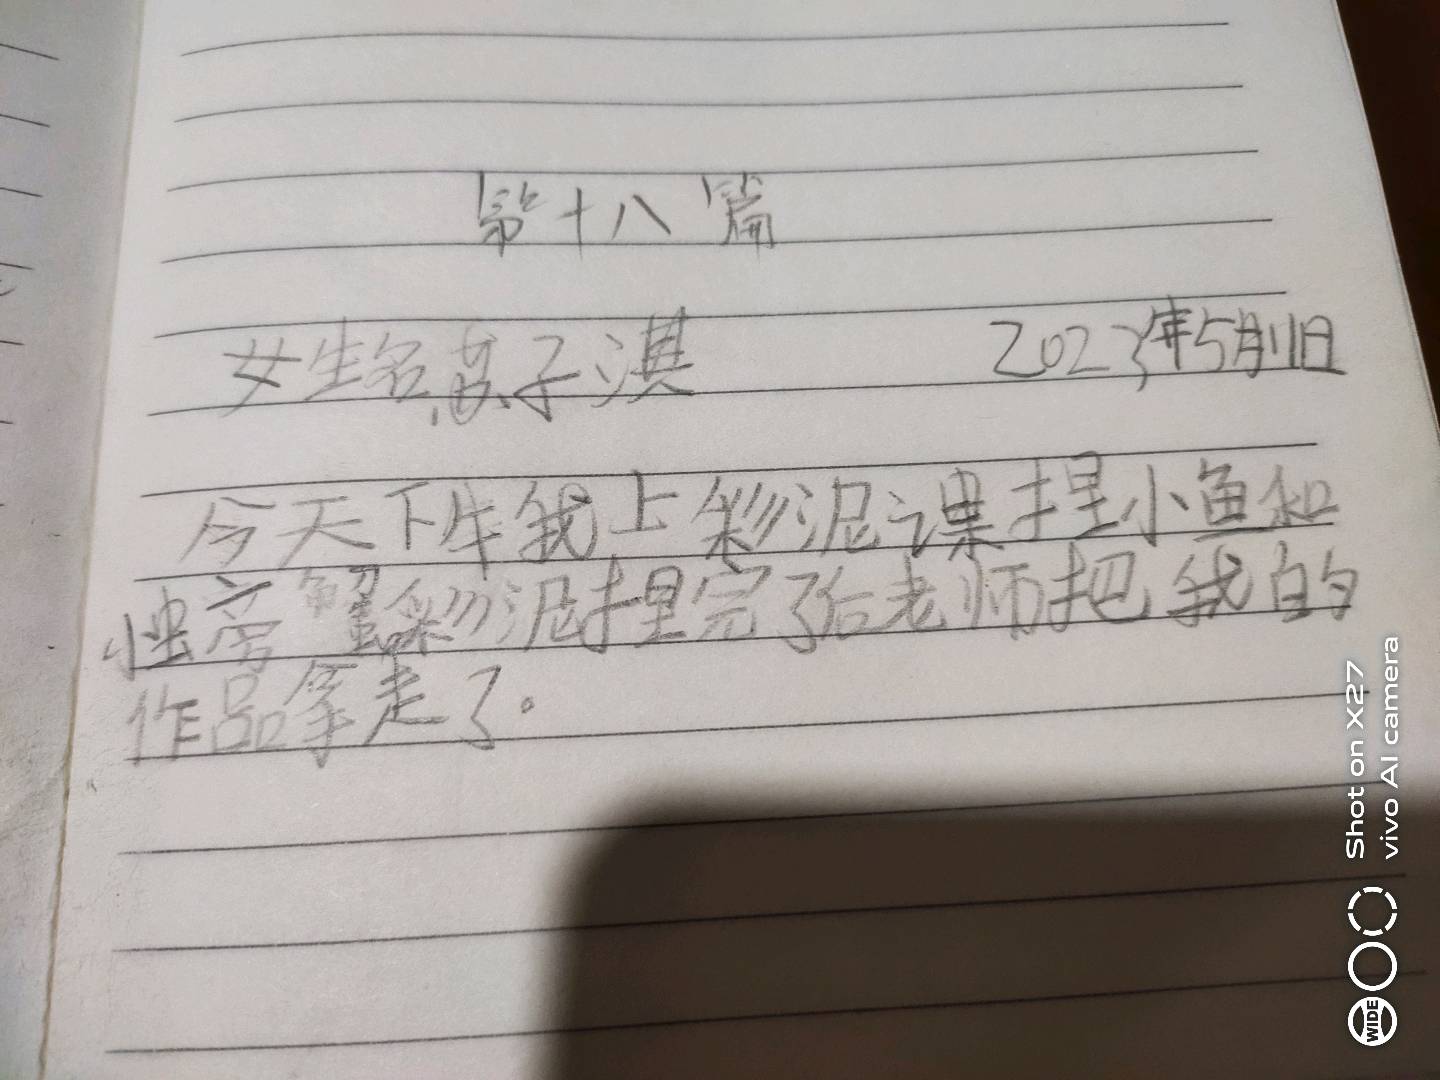 第十八篇
女生名 苏子淇 2023年5月11日
今天下午我上彩泥课捏小鱼和
螃蟹彩泥捏完了后老师把我的
作品拿走了。
Shot on X27
vivo AI camera
WIDE